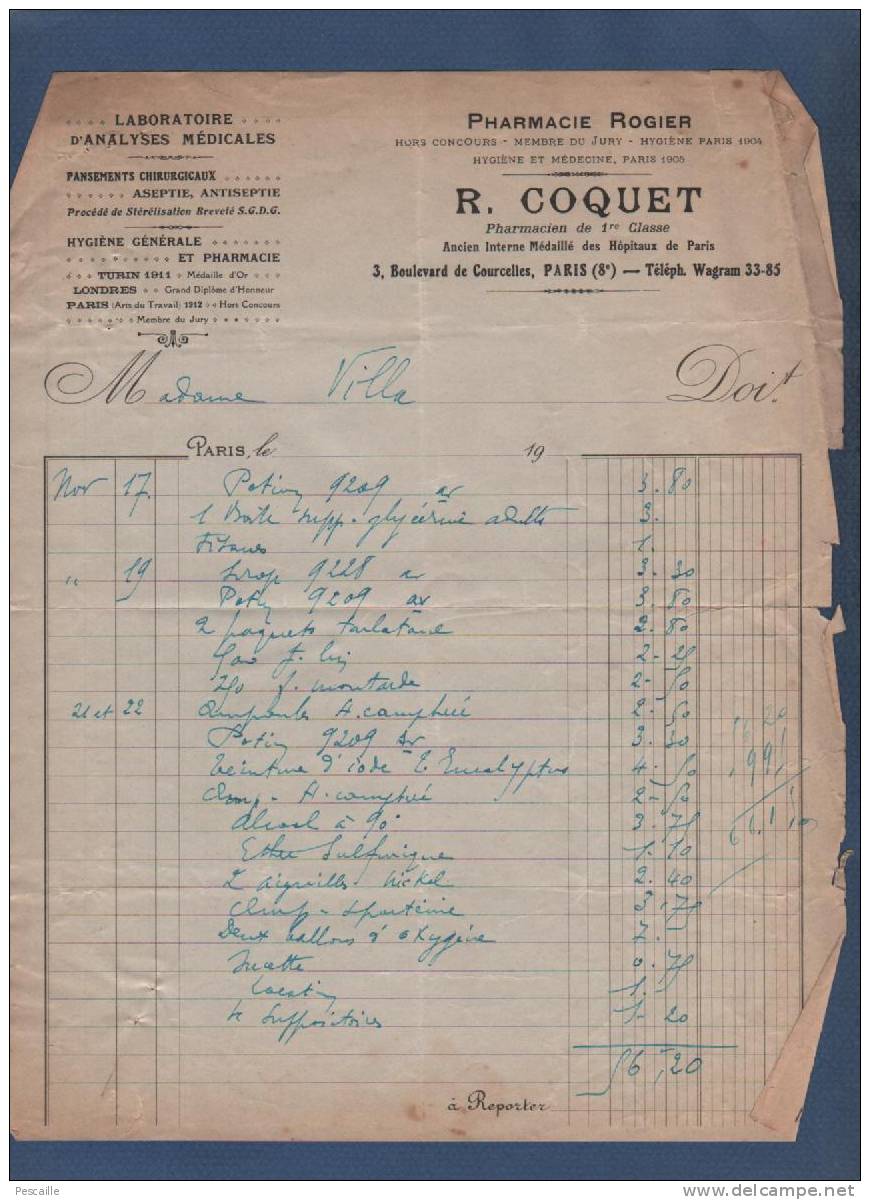 LABORATOIRE
D'ANALYSES MÉDICALES
PANSEMENTS CHIRURGICAUX
ASEPTIE, ANTISEPTIE
Procédé de Stérélisation Breveté S.G.D.G.
HYGIÈNE GÉNÉRALE
ET PHARMACIE
TURIN 1911 Médaille d'Or
LONDRES Grand Diplôme d'Honneur
PARIS (Arts du Travail) 1912 Hors Concours
Membre du Jury
PHARMACIE ROGIER
HORS CONCOURS - MEMBRE DU JURY - HYGIÈNE PARIS 1904
HYGIÈNE ET MÉDECINE, PARIS 1905
R. COQUET
Pharmacien de 1re Classe
Ancien Interne Médaillé des Hôpitaux de Paris
3, Boulevard de Courcelles, PARIS (8e) — Téléph. Wagram 33-85
Madame Villa Doit
PARIS, le 19
Nov 17 Potion 9209 ar 3.80
1 Boite supp. glycérine adulte 3.
Tisanes 1.
" 19 Sirop 9228 ar 3.30
Potion 9209 ar 3.80
2 paquets tarlatane 2.80
f. lin 2-25
f. moutarde 2-50
21 et 22 Ampoules H. camphré 2.50
Potion 9209 ar 3.30
Teinture d'iode E. Eucalyptus 4.50
Amp - H. camphré 2-50
Alcool à 90° 3.75
Ether Sulfurique 1.10
2 aiguilles nickel 2.40
Amp - Spartéine 3.75
Deux ballons d'oxygène 7.
0.75
Location 1.
4 Suppositoires 1-20
56,20
à Reporter
Pescaille
delcampe.net